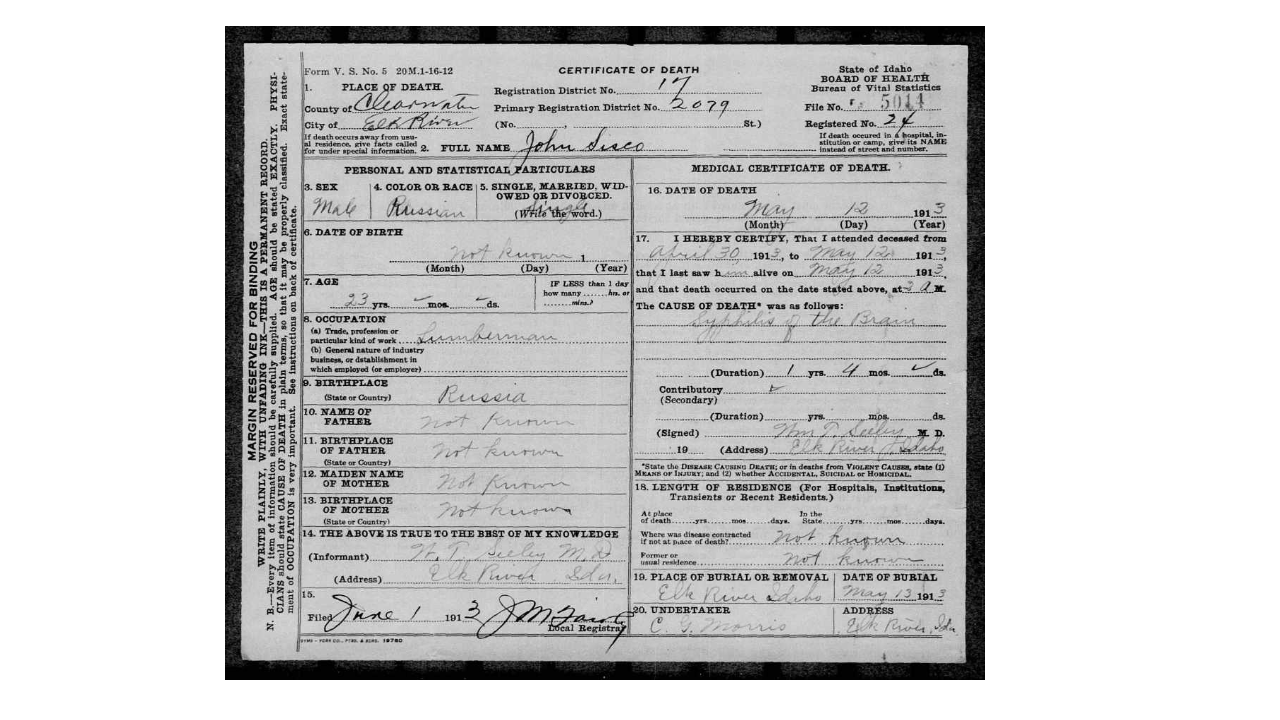 MARGIN RESERVED FOR BINDING
WRITE PLAINLY, WITH UNFADING INK—THIS IS A PERMANENT RECORD.
N. B.—Every item of information should be carefully supplied. AGE should be stated EXACTLY. PHYSI-
CIANS should state CAUSE OF DEATH in plain terms, so that it may be properly classified. Exact state-
ment of OCCUPATION is very important. See instructions on back of certificate.
Form V. S. No. 5 20M.1-16-12
CERTIFICATE OF DEATH
State of Idaho
BOARD OF HEALTH
Bureau of Vital Statistics
1. PLACE OF DEATH.
Registration District No. 17
County of Clearwater
Primary Registration District No. 2079
File No. 5011
City of Elk River
(No. , St.)
Registered No. 24
If death occurs away from usu-
al residence, give facts called
for under special information.
2. FULL NAME John Sisco
If death occured in a hospital, in-
stitution or camp, give its NAME
instead of street and number.
PERSONAL AND STATISTICAL PARTICULARS
3. SEX
Male
4. COLOR OR RACE
Russian
5. SINGLE, MARRIED, WID-
OWED OR DIVORCED.
Single
(Write the word.)
6. DATE OF BIRTH
Not known 1
(Month) (Day) (Year)
7. AGE
23 yrs. mos. ds.
IF LESS than 1 day
how many ...... hs. or
...... mins.?
8. OCCUPATION
(a) Trade, profession or
particular kind of work Lumberman
(b) General nature of industry
business, or dstablishment in
which employed (or employer)
9. BIRTHPLACE
(State or Country) Russia
10. NAME OF
FATHER Not Known
11. BIRTHPLACE
OF FATHER Not known
(State or Country)
12. MAIDEN NAME
OF MOTHER Not Known
13. BIRTHPLACE
OF MOTHER Not known
(State or Country)
14. THE ABOVE IS TRUE TO THE BEST OF MY KNOWLEDGE
(Informant) W. T. Seeley M.D
(Address) Elk River Ida.
15.
Filed June 1 1913
Local Registrar
SYMS-YORK CO., PTRS. & BDRS. 19760
MEDICAL CERTIFICATE OF DEATH.
16. DATE OF DEATH
May 12 1913
(Month) (Day) (Year)
17. I HEREBY CERTIFY, That I attended deceased from
April 30 1913, to May 12 1913,
that I last saw him alive on May 12 1913,
and that death occurred on the date stated above, at 2 A M.
The CAUSE OF DEATH* was as follows:
Syphilis of the Brain
(Duration) 1 yrs. 4 mos. ds.
Contributory
(Secondary)
(Duration) yrs. mos. ds.
(Signed) Wm T. Seeley M. D.
19 (Address) Elk River, Idaho
*State the DISEASE CAUSING DEATH; or in deaths from VIOLENT CAUSES, state (1)
MEANS OF INJURY; and (2) whether ACCIDENTAL, SUICIDAL or HOMICIDAL.
18. LENGTH OF RESIDENCE (For Hospitals, Institutions,
Transients or Recent Residents.)
At place
of death......yrs......mos......days.
In the
State......yrs......mos......days.
Where was disease contracted
if not at place of death? Not known
Former or
usual residence Not known
19. PLACE OF BURIAL OR REMOVAL
Elk River Idaho
DATE OF BURIAL
May 13 1913
20. UNDERTAKER
C. G. Morris
ADDRESS
Elk River, Ida.